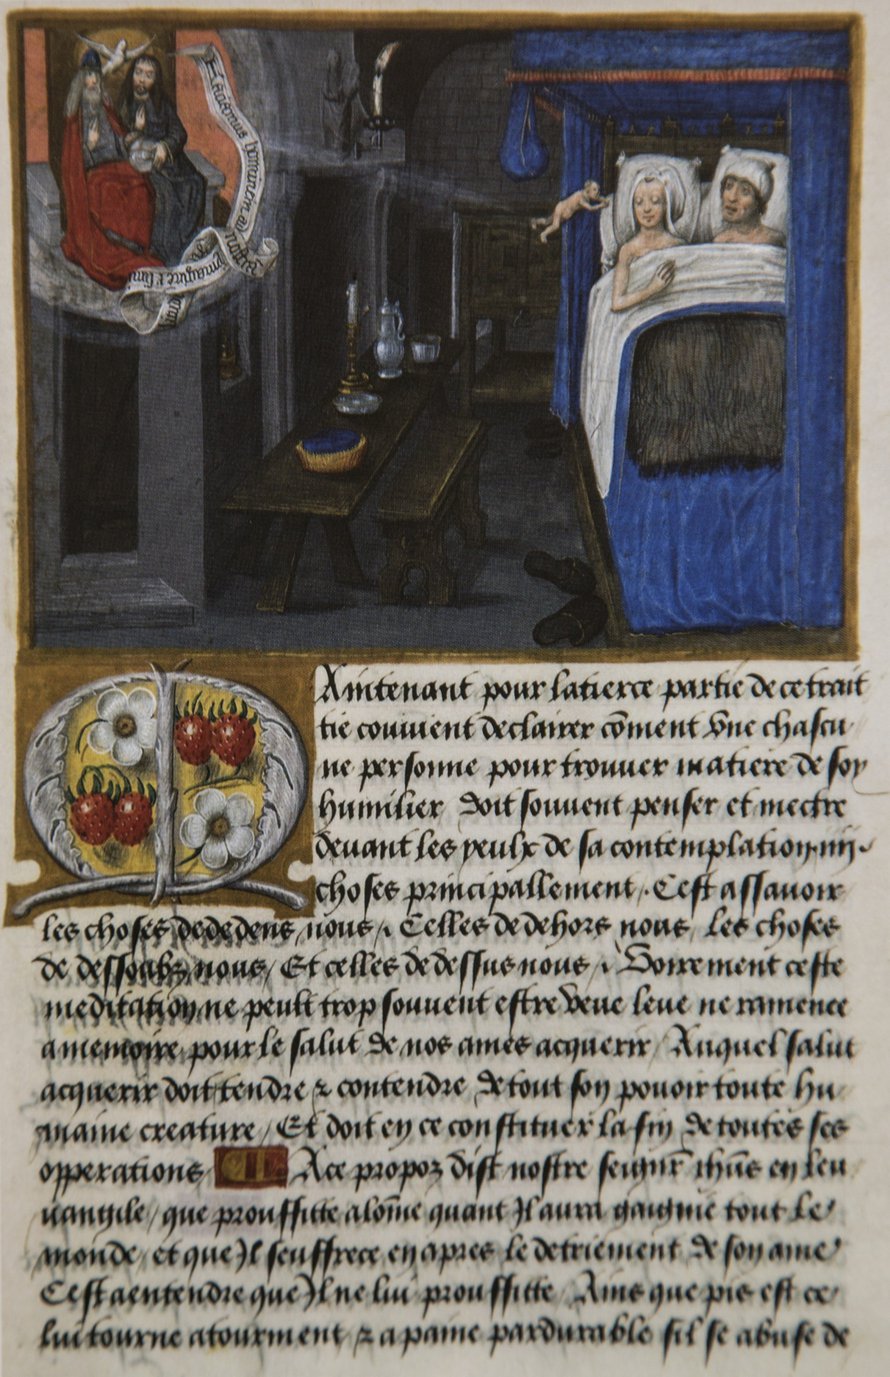 Faciamus hominem ad
nostram
ymaginem et simi
Aintenant pour la tierce partie de ce trait
tie couvient declairer cōment vne chascu
ne personne pour trouver matiere de soy
humilier doit souvent penser et mectre
devant les yeulx de sa contemplation iiij.
choses principallement. Cest assavoir
les choses de dedens nous, Celles de dehors nous, les choses
de dessoubz nous, Et celles de dessus nous, Voirement ceste
meditation ne peult trop souvent estre veue leue ne ramenee
a memoire pour le salut de nos ames acquerir, Auquel salut
acquerir doit tendre & contendre de tout son povoir toute hu
maine creature, Et doit en ce constituer la fin de toutes ses
opperations A ce propoz dist nostre seignr̄ ihūs en leu
uangile, que prouffitte a lōme quant Il aura gaignie tout le
monde, et que Il seuffrece en apres le detriement de son ame
Cest a entendre que Il ne lui prouffitte, Ains que pis est ce
lui tourne a tourment & a paine pardurable sil se abuse de